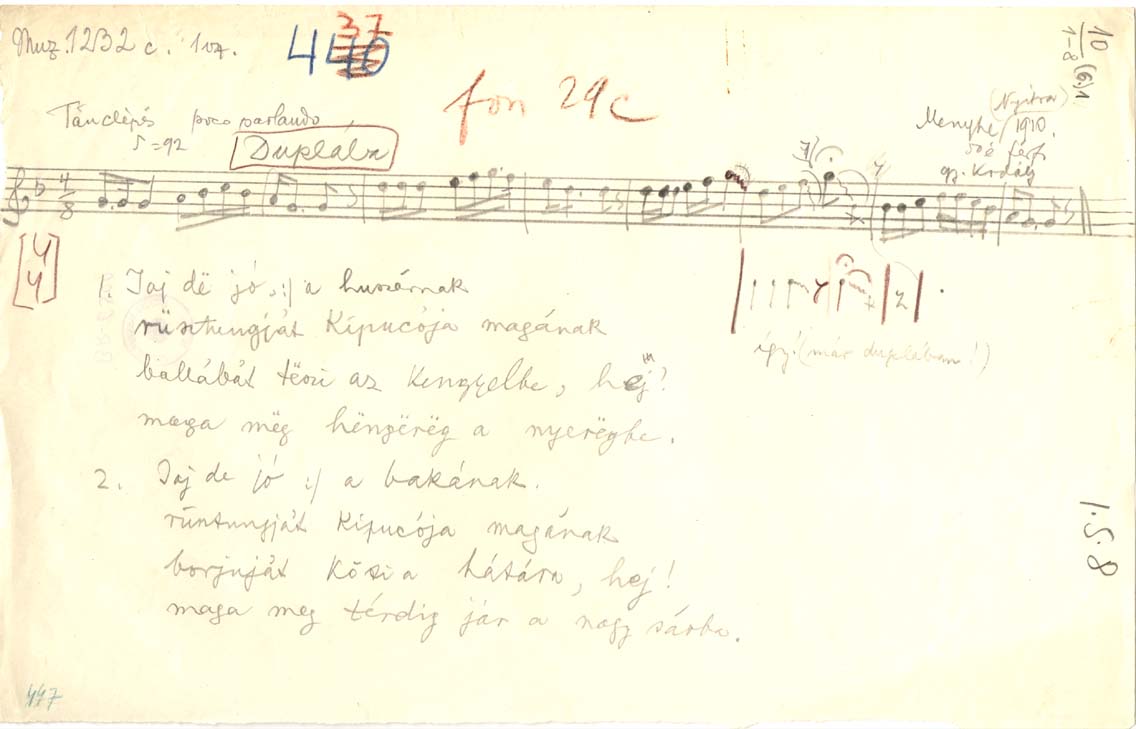 Muz.1232 c. 1oz.
37
440
fon 29c
10
1-8
(6)1
Tánclépés poco parlando
=92
Duplába
(Nyitra)
Menyhe 1910.
50 é férf
gz. Kodály
4
8
4
4
1. Jaj dë jó :/ a huszárnak
rüsztungját kipucója magának
ballábát tëszi az kengyelbe, hej!
maga mëg hëngërëg a nyerëgbe.
így! (már duplában!)
2. Jaj de jó :/ a bakának.
rüntungját kipucója magának
borjuját köti a hátára, hej!
maga meg térdig jár a nagy sárba.
1.5.8
447